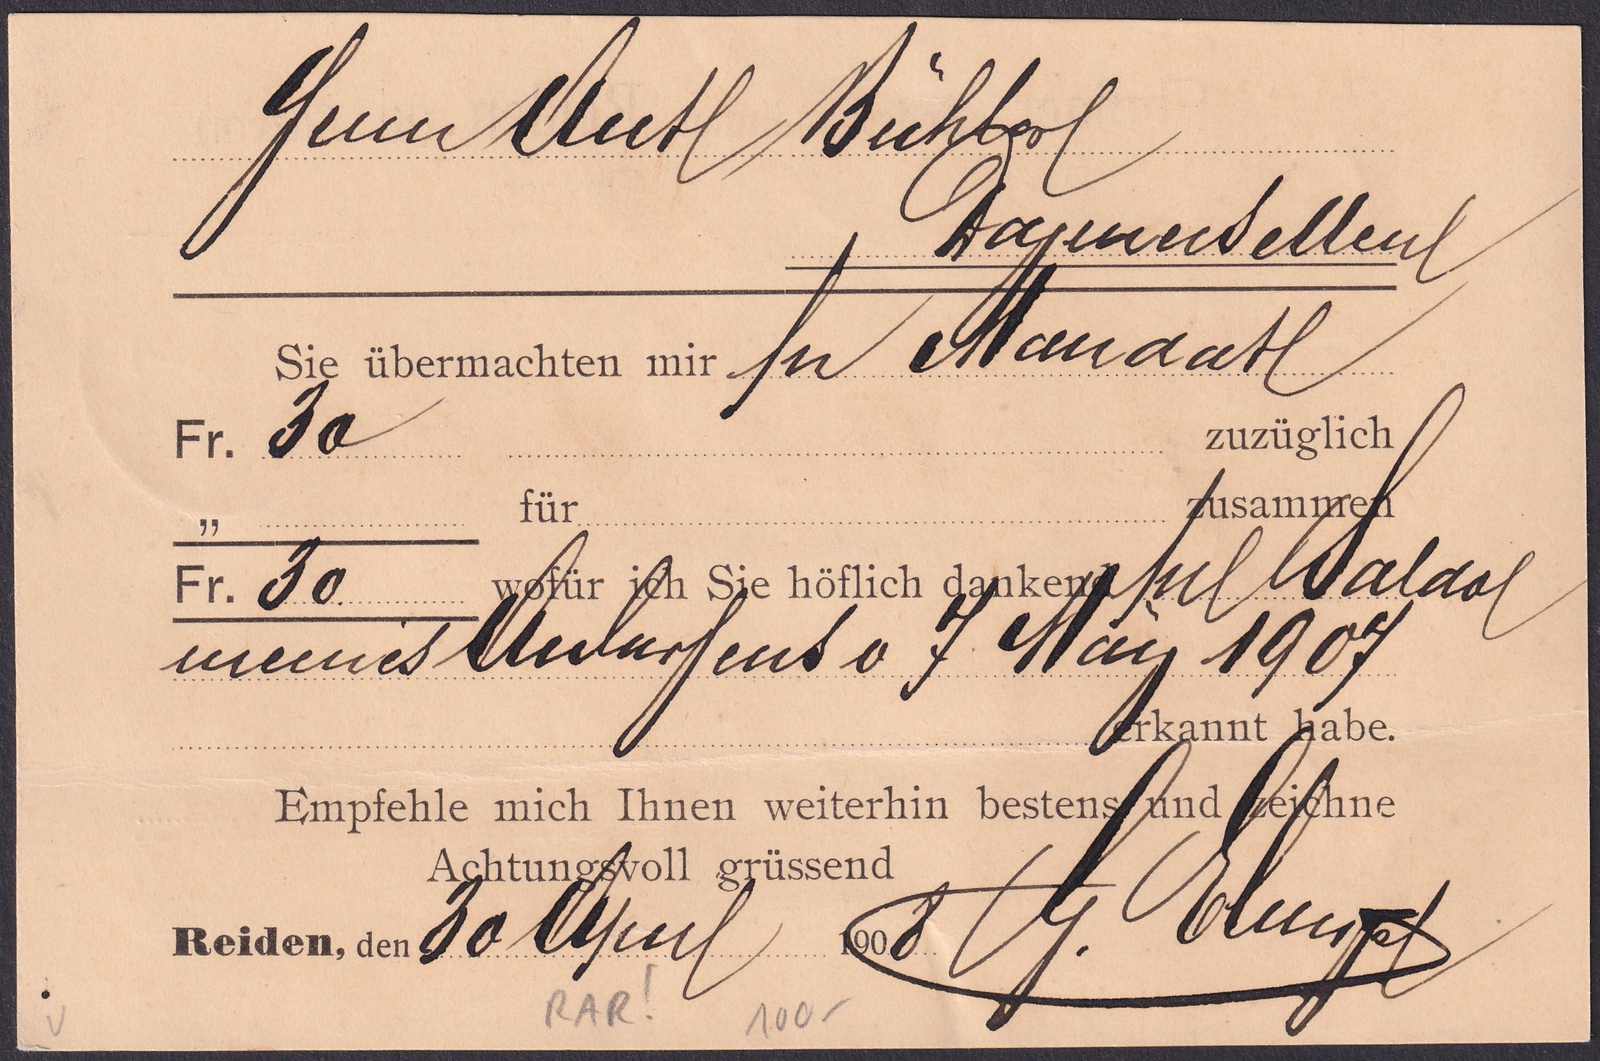 Herrn Ant. Bühler
Dagmersellen
Sie übermachten mir in Mandat
Fr. 30 zuzüglich
„ für zusammen
Fr. 30 wofür ich Sie höflich dankend per Saldo
meines v 7 May 1907
erkannt habe.
Empfehle mich Ihnen weiterhin bestens und zeichne
Achtungsvoll grüssend
Reiden, den 30 April 1908 G.
RAR! 100.-